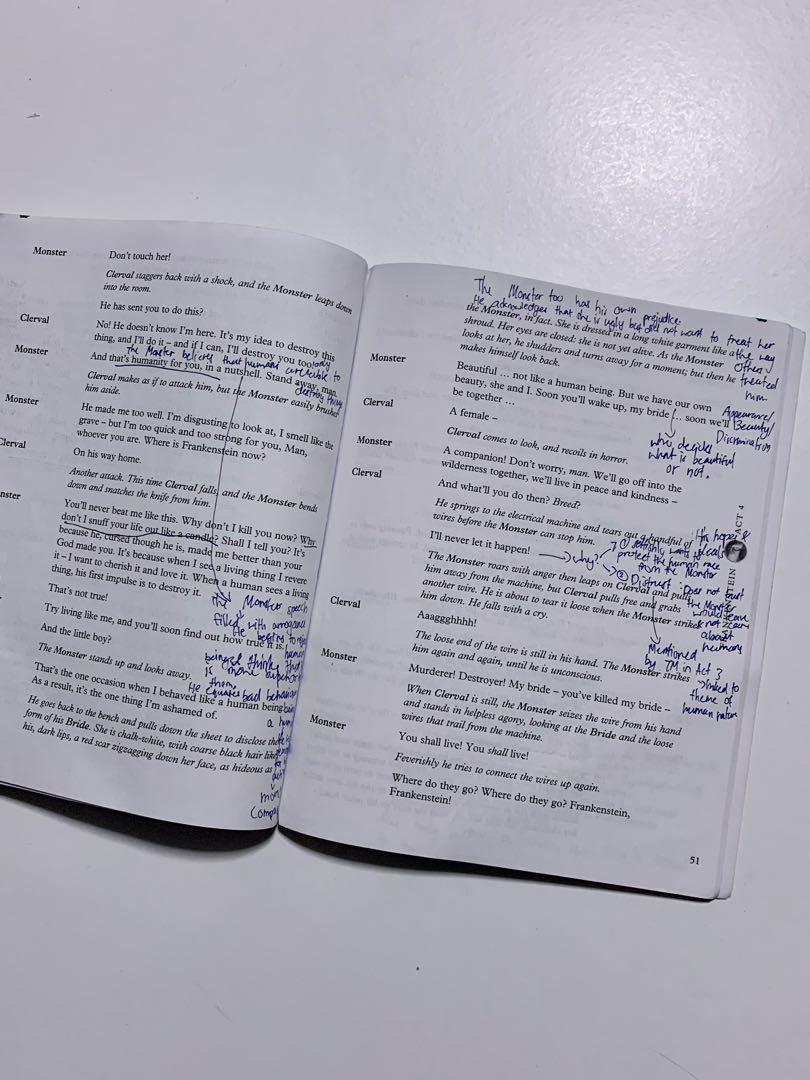 Monster Don't touch her!
Clerval staggers back with a shock, and the Monster leaps down
into the room.
Clerval He has sent you to do this?
Monster No! He doesn't know I'm here. It's my idea to destroy this
thing, and I'll do it – and if I can, I'll destroy you too!
the Monster believes that humans are liable to only
destroy things
And that's humanity for you, in a nutshell. Stand away, man.
Clerval makes as if to attack him, but the Monster easily brushes
him aside.
Monster He made me too well. I'm disgusting to look at, I smell like the
grave – but I'm too quick and too strong for you, Man,
whoever you are. Where is Frankenstein now?
Clerval On his way home.
Another attack. This time Clerval falls, and the Monster bends
down and snatches the knife from him.
nster You'll never beat me like this. Why don't I kill you now? Why
don't I snuff your life out like a candle? Shall I tell you? It's
because he, cursed though he is, made me better than your
God made you. It's because when I see a living thing I revere
it – I want to cherish it and love it. When a human sees a living
thing, his first impulse is to destroy it.
That's not true!
Monster speech
filled with arrogance
Try living like me, and you'll soon find out how true it is.
He begins to
And the little boy?
The Monster stands up and looks away.
thinks that
is more superior
them.
That's the one occasion when I behaved like a human being.
He equates bad behaviour
As a result, it's the one thing I'm ashamed of.
He goes back to the bench and pulls down the sheet to disclose the
form of his Bride. She is chalk-white, with coarse black hair like
his, dark lips, a red scar zigzagging down her face, as hideous as
The Monster too has his own prejudice.
He acknowledges that she is ugly but did not want to treat her
the way
others
treated
him.
the Monster, in fact. She is dressed in a long white garment like a
shroud. Her eyes are closed: she is not yet alive. As the Monster
looks at her, he shudders and turns away for a moment; but then he
makes himself look back.
Monster Beautiful … not like a human being. But we have our own
beauty, she and I. Soon you'll wake up, my bride … soon we'll
be together …
Appearance/
Beauty/
Discrimination
who decides
what is beautiful
or not.
Clerval A female –
Clerval comes to look, and recoils in horror.
Monster A companion! Don't worry, man. We'll go off into the
wilderness together, we'll live in peace and kindness –
Clerval And what'll you do then? Breed?
He springs to the electrical machine and tears out a handful of
wires before the Monster can stop him.
I'll never let it happen!
why?
① wants to
protect the human race
from the Monster
② Distrust: Does not trust
the Monster
would leave
& not
about
humans
The Monster roars with anger then leaps on Clerval and pulls
him away from the machine, but Clerval pulls free and grabs
another wire. He is about to tear it loose when the Monster strikes
him down. He falls with a cry.
Clerval Aaaggghhhh!
Mentioned
by TM in Act 3
linked to
theme of
human nature
The loose end of the wire is still in his hand. The Monster strikes
him again and again, until he is unconscious.
Monster Murderer! Destroyer! My bride – you've killed my bride –
When Clerval is still, the Monster seizes the wire from his hand
and stands in helpless agony, looking at the Bride and the loose
wires that trail from the machine.
Monster You shall live! You shall live!
Feverishly he tries to connect the wires up again.
Where do they go? Where do they go? Frankenstein,
Frankenstein!
ACT 4
51